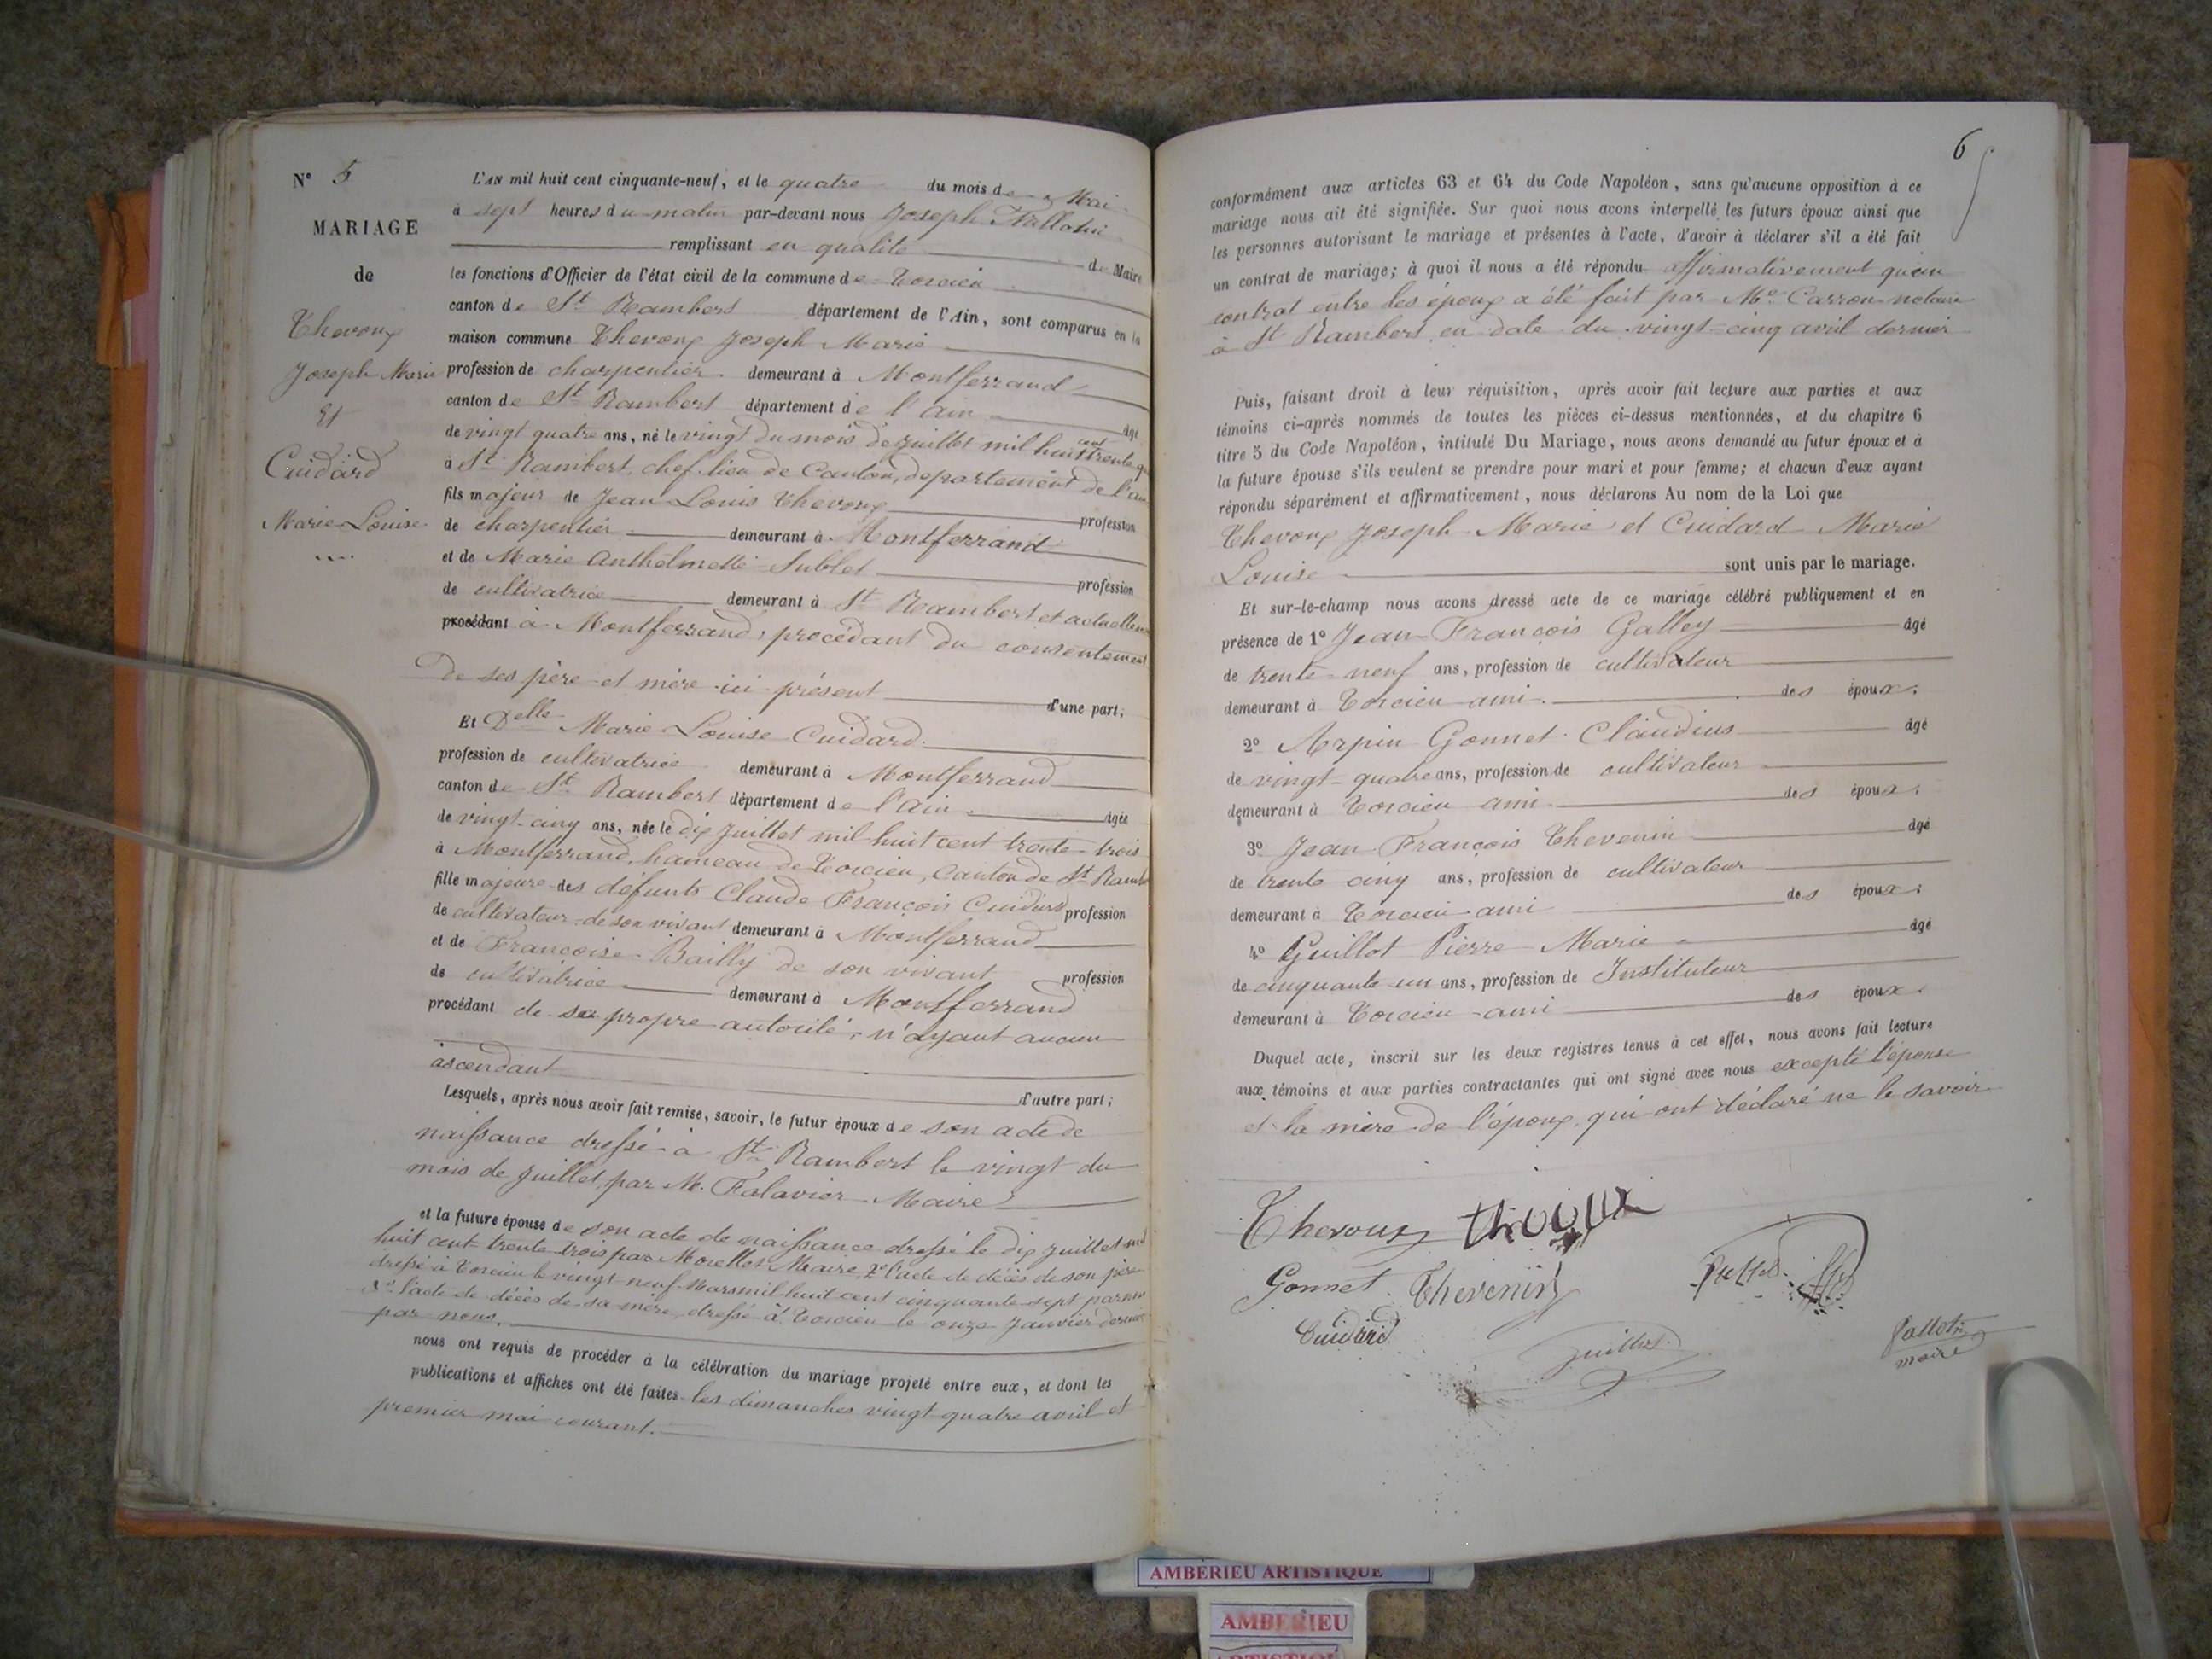 N° 5
MARIAGE
de
Thevoux
Joseph Marie
Et
Cuidard
Marie Louise
L'AN mil huit cent cinquante-neuf, et le quatre du mois de Mai
à sept heures du matin par-devant nous Joseph
remplissant en qualité de Maire
les fonctions d'Officier de l'état civil de la commune de Torcieu
canton de St Rambert département de l'Ain, sont comparus en la
maison commune Thevoux Joseph Marie
profession de charpentier demeurant à Montferrand
canton de St Rambert département de l'ain âgé
de vingt quatre ans, né le vingt du mois de juillet mil huit cent trente
à St Rambert chef-lieu de Canton, departement de l'ain
fils majeur de Jean Louis Thevoux profession
de charpentier demeurant à Montferrand
et de Marie Anthelmette Sublet profession
de cultivatrice demeurant à St Rambert et actuellem
procédant à Montferrand, procédant du consentement
de ses père et mère ici présent d'une part;
Et Delle Marie Louise Cuidard
profession de cultivatrice demeurant à Montferrand
canton de St Rambert département de l'ain âgée
de vingt-cinq ans, née le dix Juillet mil huit cent trente-trois
à Montferrand, hameau de Torcieu, Canton de St Ramb
fille majeure des défunts Claude François Cuidard profession
de cultivateur de son vivant demeurant à Montferrand
et de Françoise Bailly de son vivant profession
de cultivatrice demeurant à Montferrand
procédant de sa propre autorité, n'ayant aucun
ascendant
d'autre part;
Lesquels, après nous avoir fait remise, savoir, le futur époux de son acte de
naissance dressé à St Rambert le vingt du
mois de Juillet, par M. Falavier Maire
et la future épouse de son acte de naissance dressé le dix Juillet mil
huit cent trente trois par Morellet Maire, 2° l'acte de décès de son père
dressé à Torcieu le vingt-neuf Mars mil huit cent cinquante-sept par nous
3° l'acte de décès de sa mère, dressé à Torcieu le onze Janvier dernier
par nous.
nous ont requis de procéder à la célébration du mariage projeté entre eux, et dont les
publications et affiches ont été faites les dimanches vingt-quatre avril et
premier mai courant.
6
conformément aux articles 63 et 64 du Code Napoléon, sans qu'aucune opposition à ce
mariage nous ait été signifiée. Sur quoi nous avons interpellé les futurs époux ainsi que
les personnes autorisant le mariage et présentes à l'acte, d'avoir à déclarer s'il a été fait
un contrat de mariage; à quoi il nous a été répondu affirmativement qu'un
contrat entre les époux a été fait par Me Carron notaire
à St Rambert en date du vingt-cinq avril dernier
Puis, faisant droit à leur réquisition, après avoir fait lecture aux parties et aux
témoins ci-après nommés de toutes les pièces ci-dessus mentionnées, et du chapitre 6
titre 5 du Code Napoléon, intitulé Du Mariage, nous avons demandé au futur époux et à
la future épouse s'ils veulent se prendre pour mari et pour femme; et chacun d'eux ayant
répondu séparément et affirmativement, nous déclarons Au nom de la Loi que
Thevoux Joseph Marie et Cuidard Marie
Louise sont unis par le mariage.
Et sur-le-champ nous avons dressé acte de ce mariage célébré publiquement et en
présence de 1° Jean François Galley âgé
de trente-neuf ans, profession de cultivateur
demeurant à Torcieu ami des époux;
2° Arpin Gonnet Claudius âgé
de vingt-quatre ans, profession de cultivateur
demeurant à Torcieu ami des époux;
3° Jean François Thevenin âgé
de trente cinq ans, profession de cultivateur
demeurant à Torcieu ami des époux;
4° Guillot Pierre Marie âgé
de cinquante un ans, profession de Instituteur
demeurant à Torcieu ami des époux.
Duquel acte, inscrit sur les deux registres tenus à cet effet, nous avons fait lecture
aux témoins et aux parties contractantes qui ont signé avec nous excepté l'épouse
et la mère de l'époux qui ont déclaré ne le savoir
Thevoux
Gonnet Thevenin
Cuidard
Guillot
maire
AMBERIEU ARTISTIQUE
AMBERIEU
ARTISTIQUE